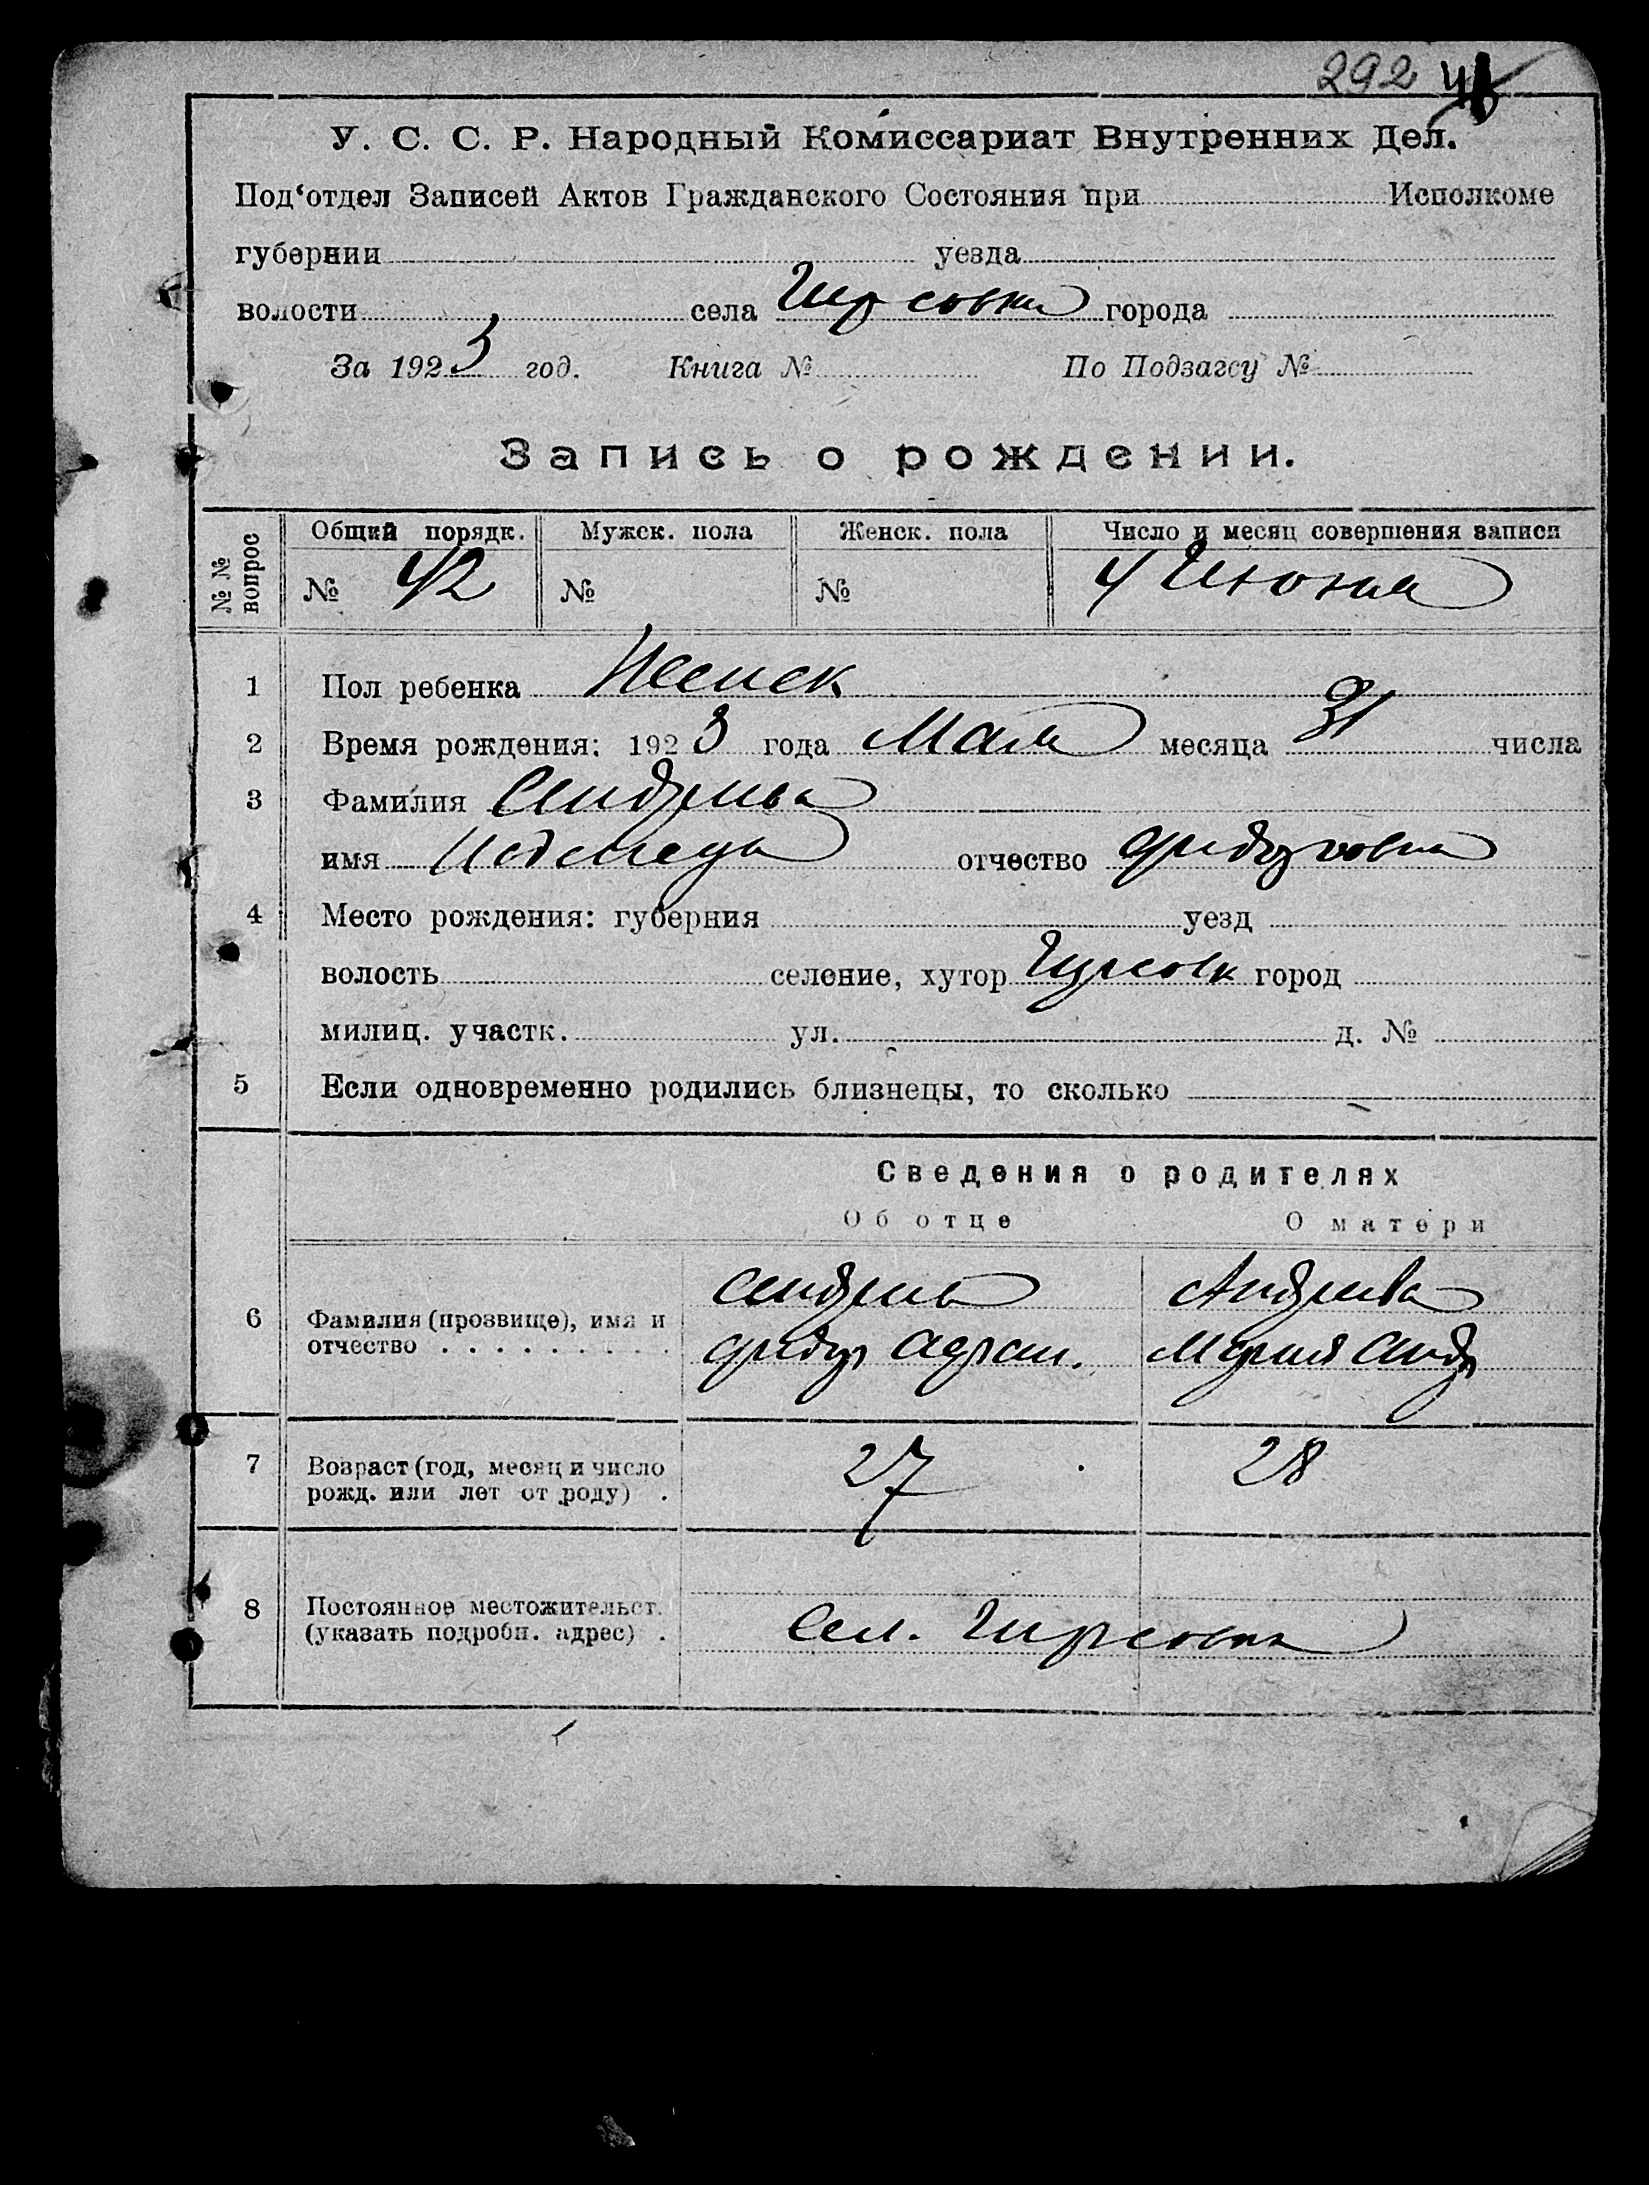 292
У. С. С. Р. Народный Комиссариат Внутренних Дел.
Под‘отдел Записей Актов Гражданского Состояния при Исполкоме
губернии уезда
волости села Гирсовка города
За 1923 год. Книга № По Подзагсу №
Запись о рождении.
№ № вопрос Общий порядк. Мужск. пола Женск. пола Число и месяц совершения записи
№ 42 № № 4 Июня
1 Пол ребенка Женск
2 Время рождения: 1923 года Мая месяца 31 числа
3 Фамилия Андреева
имя отчество
4 Место рождения: губерния уезд
волость селение, хутор Гирсовк город
милиц. участк. ул. д. №
5 Если одновременно родились близнецы, то сколько
Сведения о родителях
Об отце О матери
Андреев Андреева
6 Фамилия (прозвище), имя и
отчество Мария Андр
7 Возраст (год, месяц и число
рожд. или лет от роду) 27 28
8 Постоянное местожительст.
(указать подробн. адрес) Сел. Гирсовка